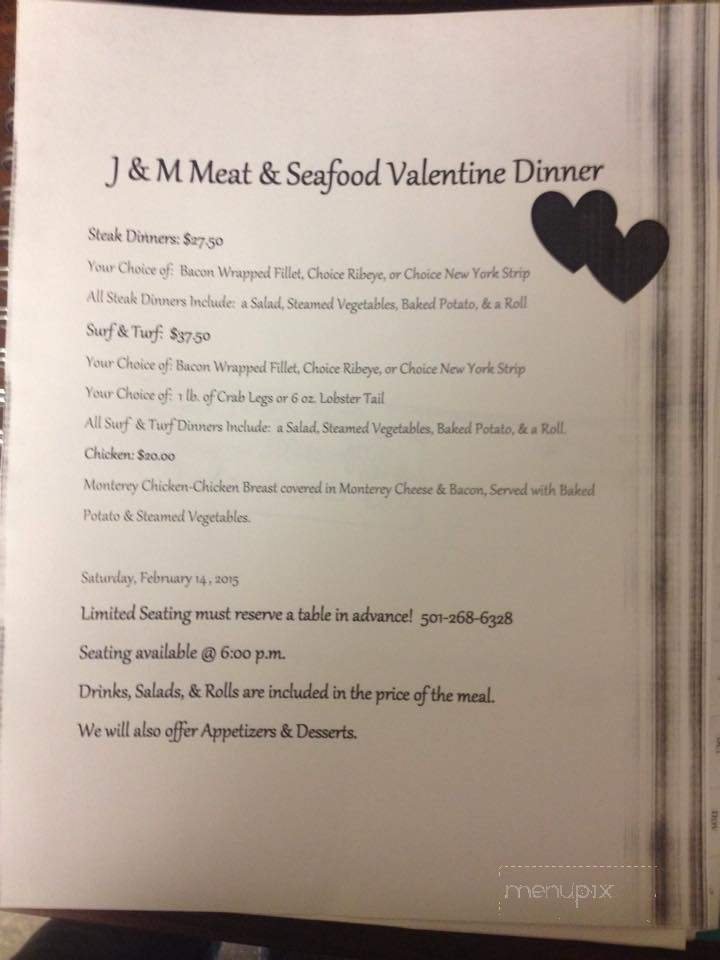 J & M Meat & Seafood Valentine Dinner
Steak Dinners: $27.50
Your Choice of: Bacon Wrapped Fillet, Choice Ribeye, or Choice New York Strip
All Steak Dinners Include: a Salad, Steamed Vegetables, Baked Potato, & a Roll
Surf & Turf: $37.50
Your Choice of: Bacon Wrapped Fillet, Choice Ribeye, or Choice New York Strip
Your Choice of: 1 lb. of Crab Legs or 6 oz. Lobster Tail
All Surf & Turf Dinners Include: a Salad, Steamed Vegetables, Baked Potato, & a Roll.
Chicken: $20.00
Monterey Chicken-Chicken Breast covered in Monterey Cheese & Bacon, Served with Baked
Potato & Steamed Vegetables.
Saturday, February 14, 2015
Limited Seating must reserve a table in advance! 501-268-6328
Seating available @ 6:00 p.m.
Drinks, Salads, & Rolls are included in the price of the meal.
We will also offer Appetizers & Desserts.
menupix